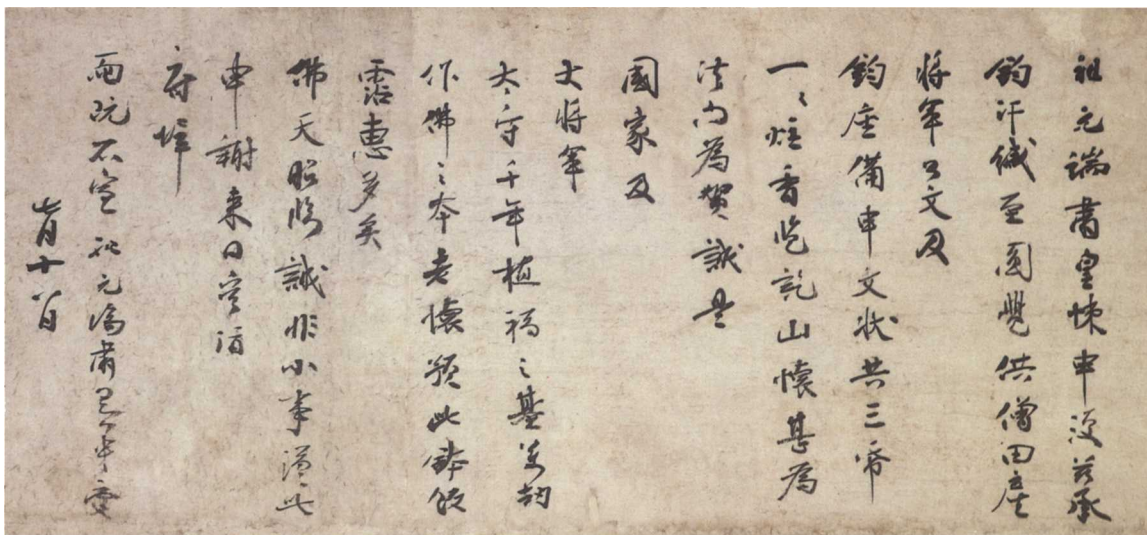 祖元端肅皇悚申復茲承
鈞汗緘至圓覺供僧田庄
將軍公文及
鈞座備申文狀共三帋
一々炷香览訖山懷甚為
法门為賀誠是
國家及
大將軍
太守千年植福之基万劫
作佛之本老懷預此鉢飯
霑惠多矣
佛天照臨誠非小事謹此
申謝来日容詣
府墀
面既不宣祖元端肅皇悚申
七月十八日